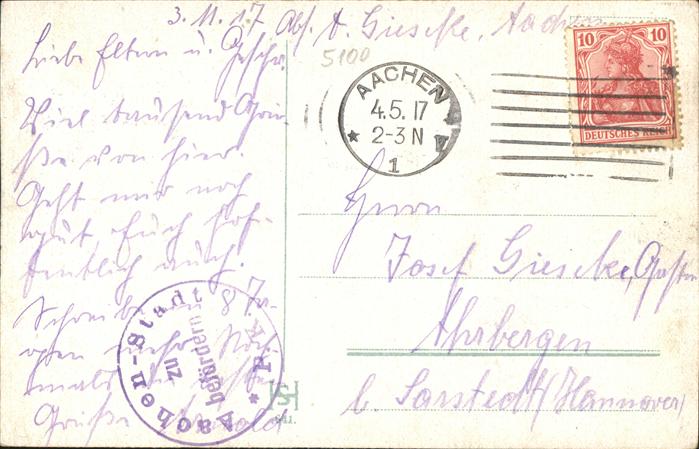 3.11.17 Abs. A. Giesecke, Aachen
Liebe Eltern u. Geschw.
Viel tausend Grü-
ße von hier.
Geht mir noch
gut, Euch hof-
fentlich auch.
Schreibe in 8 Ta-
gen mehr. Noch-
mals die besten
Grüße
5100
AACHEN
4.5.17
2-3 N
1
10 10
DEUTSCHES REICH
Herrn
Josef Giesecke, Gastw.
Ahrbergen
b. Sarstedt (Hannover)
Aachen-Stadt
zu
befördern